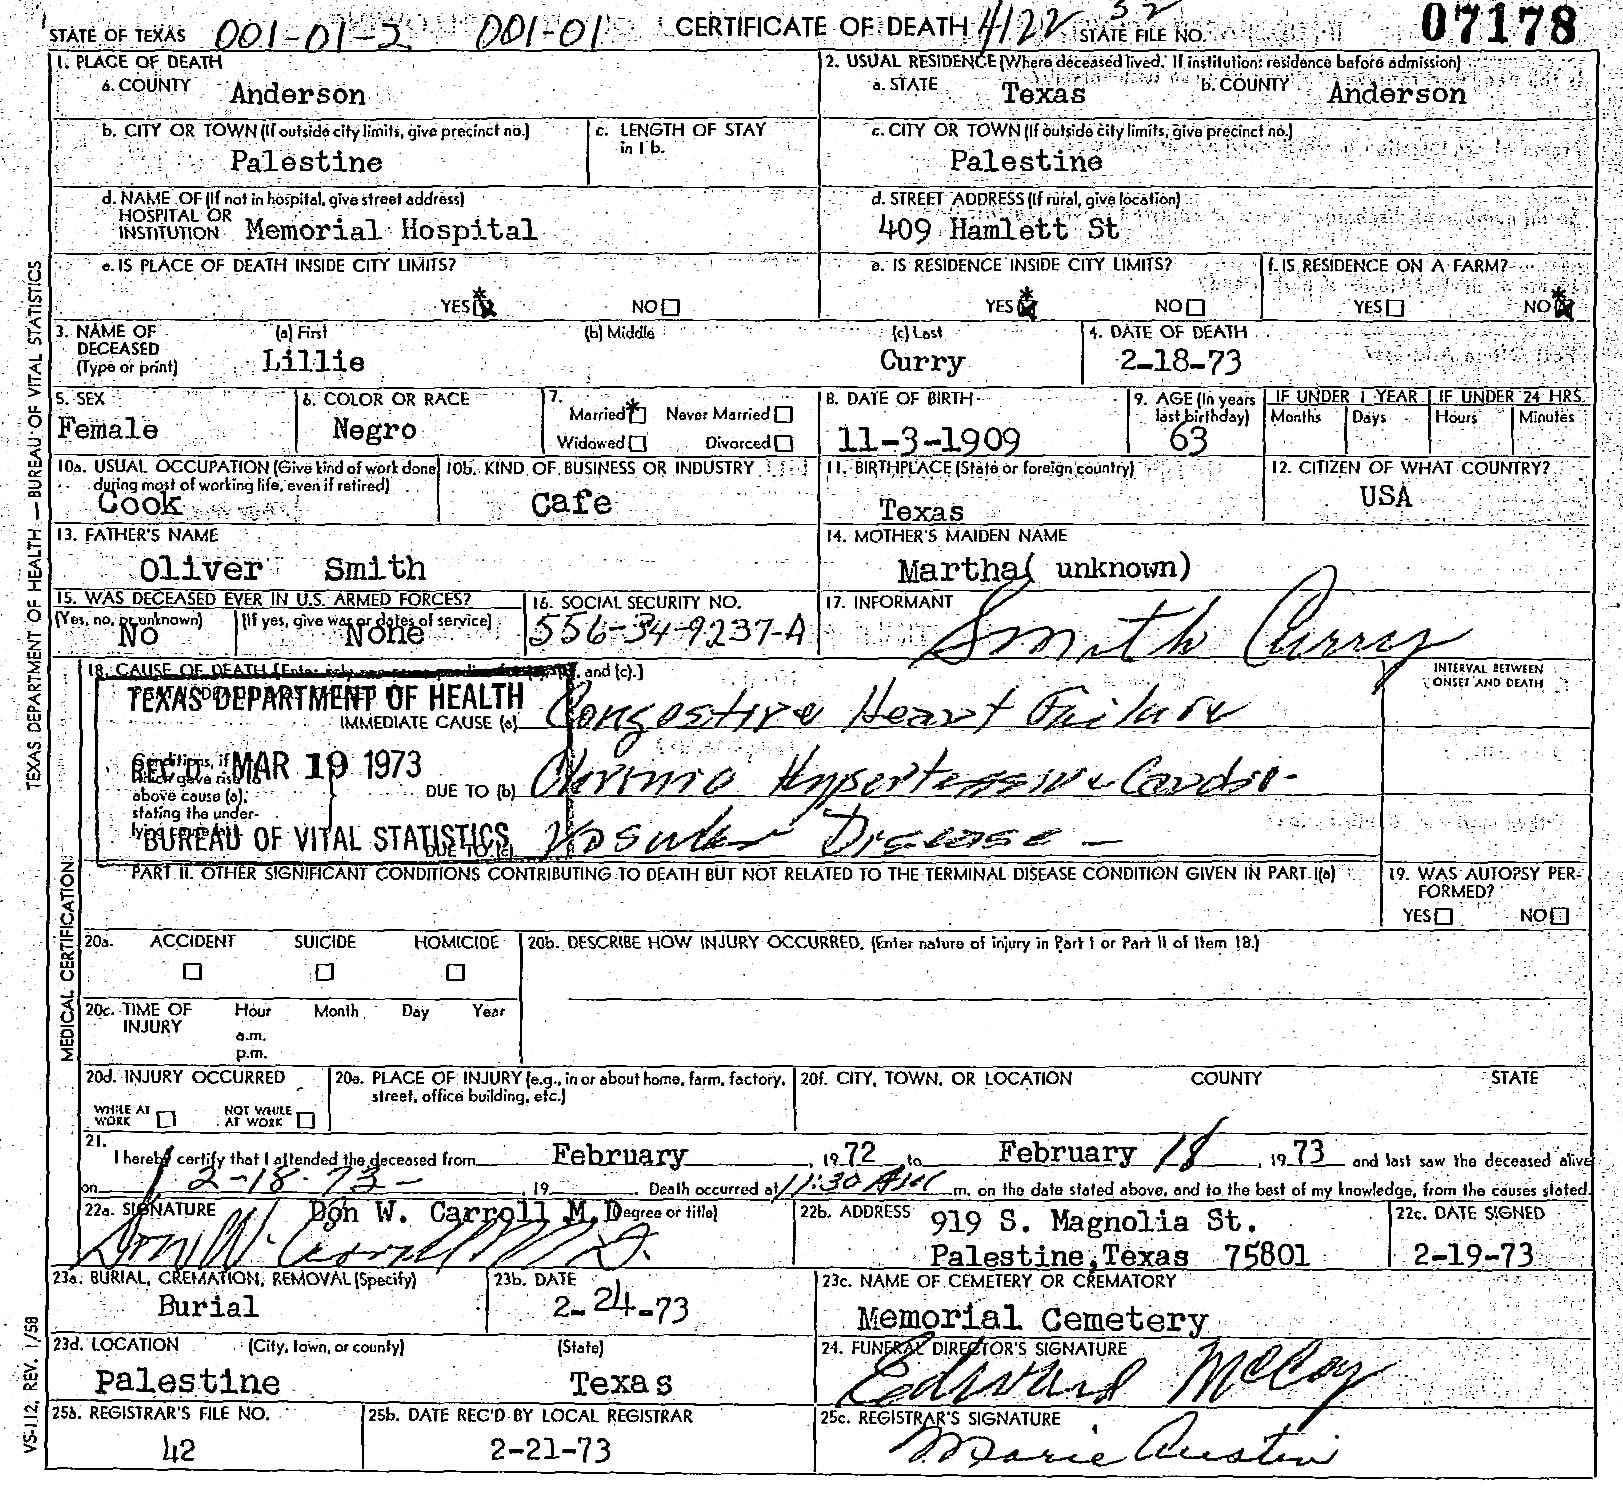 STATE OF TEXAS 001-01-2 001-01 CERTIFICATE OF DEATH 4122 52 STATE FILE NO. 07178
1. PLACE OF DEATH
a. COUNTY Anderson
2. USUAL RESIDENCE (Where deceased lived. If institution: residence before admission)
a. STATE Texas b. COUNTY Anderson
b. CITY OR TOWN (If outside city limits, give precinct no.)
Palestine
c. LENGTH OF STAY
in 1 b.
c. CITY OR TOWN (If outside city limits, give precinct no.)
Palestine
d. NAME OF (If not in hospital, give street address)
HOSPITAL OR
INSTITUTION Memorial Hospital
d. STREET ADDRESS (If rural, give location)
409 Hamlett St
e. IS PLACE OF DEATH INSIDE CITY LIMITS?
YES NO
e. IS RESIDENCE INSIDE CITY LIMITS?
YES NO
f. IS RESIDENCE ON A FARM?
YES NO
3. NAME OF
DECEASED
(Type or print)
(a) First
Lillie
(b) Middle
(c) Last
Curry
4. DATE OF DEATH
2-18-73
5. SEX
Female
6. COLOR OR RACE
Negro
7.
Married Never Married
Widowed Divorced
8. DATE OF BIRTH
11-3-1909
9. AGE (In years
last birthday)
63
IF UNDER 1 YEAR
Months Days
IF UNDER 24 HRS.
Hours Minutes
10a. USUAL OCCUPATION (Give kind of work done
during most of working life, even if retired)
Cook
10b. KIND OF BUSINESS OR INDUSTRY
Cafe
11. BIRTHPLACE (State or foreign country)
Texas
12. CITIZEN OF WHAT COUNTRY?
USA
13. FATHER'S NAME
Oliver Smith
14. MOTHER'S MAIDEN NAME
Martha( unknown)
15. WAS DECEASED EVER IN U.S. ARMED FORCES?
(Yes, no, or unknown) (If yes, give war or dates of service)
No None
16. SOCIAL SECURITY NO.
556-34-9237-A
17. INFORMANT
Smith Curry
18. CAUSE OF DEATH [Enter only and (c).]
INTERVAL BETWEEN
ONSET AND DEATH
TEXAS DEPARTMENT OF HEALTH
IMMEDIATE CAUSE (a) Congestive Heart Failure
REC'D MAR 19 1973
Conditions, if
which gave rise to
above cause (a),
stating the under-
DUE TO (b) Chronic Hypertensive Cardio-
BUREAU OF VITAL STATISTICS
DUE TO (c) Vasculer Disease -
PART II. OTHER SIGNIFICANT CONDITIONS CONTRIBUTING TO DEATH BUT NOT RELATED TO THE TERMINAL DISEASE CONDITION GIVEN IN PART I(a)
19. WAS AUTOPSY PER-
FORMED?
YES NO
20a. ACCIDENT SUICIDE HOMICIDE
20b. DESCRIBE HOW INJURY OCCURRED. (Enter nature of injury in Part I or Part II of Item 18.)
20c. TIME OF
INJURY
Hour Month Day Year
a.m.
p.m.
20d. INJURY OCCURRED
WHILE AT
WORK
NOT WHILE
AT WORK
20e. PLACE OF INJURY (e.g., in or about home, farm, factory,
street, office building, etc.)
20f. CITY, TOWN, OR LOCATION COUNTY STATE
21.
I hereby certify that I attended the deceased from February , 1972 to February 18 , 1973 and last saw the deceased alive
on 2-18-73- , 19 . Death occurred at 11:30 AM m. on the date stated above, and to the best of my knowledge, from the causes stated.
22a. SIGNATURE Don W. Carroll M.D (Degree or title)
Don W. Carroll M.D.
22b. ADDRESS 919 S. Magnolia St.
Palestine, Texas 75801
22c. DATE SIGNED
2-19-73
23a. BURIAL, CREMATION, REMOVAL (Specify)
Burial
23b. DATE
2-24-73
23c. NAME OF CEMETERY OR CREMATORY
Memorial Cemetery
23d. LOCATION (City, town, or county) (State)
Palestine Texas
24. FUNERAL DIRECTOR'S SIGNATURE
Edward McCoy
25a. REGISTRAR'S FILE NO.
42
25b. DATE REC'D BY LOCAL REGISTRAR
2-21-73
25c. REGISTRAR'S SIGNATURE
Marie Austin
TEXAS DEPARTMENT OF HEALTH — BUREAU OF VITAL STATISTICS
MEDICAL CERTIFICATION
VS-112, REV. 1/58